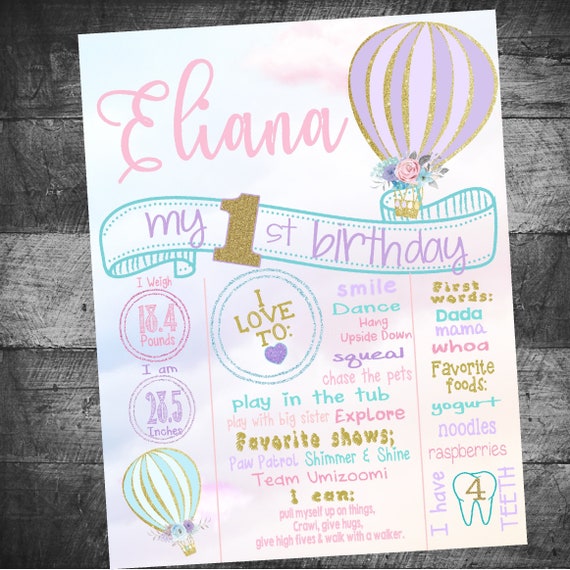 Eliana
my 1st birthday
I Weigh
18.4
Pounds
I am
28.5
Inches
I
LOVE
TO:
smile
Dance
Hang
Upside Down
squeal
chase the pets
play in the tub
play with big sister Explore
Favorite shows;
Paw Patrol Shimmer & Shine
Team Umizoomi
I can:
pull myself up on things,
Crawl, give hugs,
give high fives & walk with a walker.
First
words:
Dada
mama
whoa
Favorite
foods:
yogurt
noodles
raspberries
I have
4
TEETH